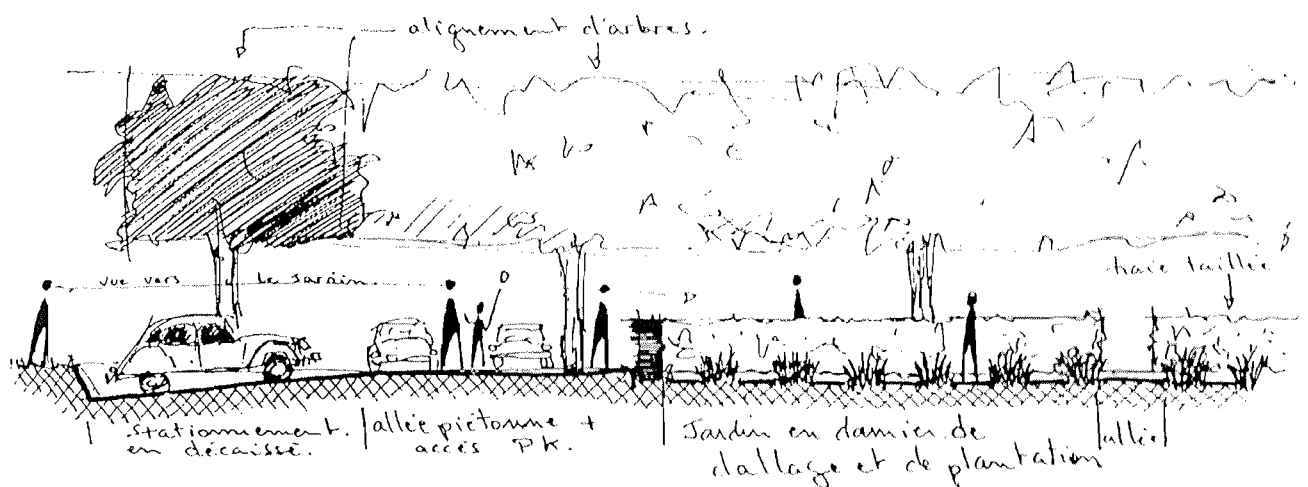 alignement d'arbres.
haie taillée
vue vers le jardin
stationnement.
en décaissé.
allée piétonne +
accès PK.
Jardin en damier de
dallage et de plantation
allée